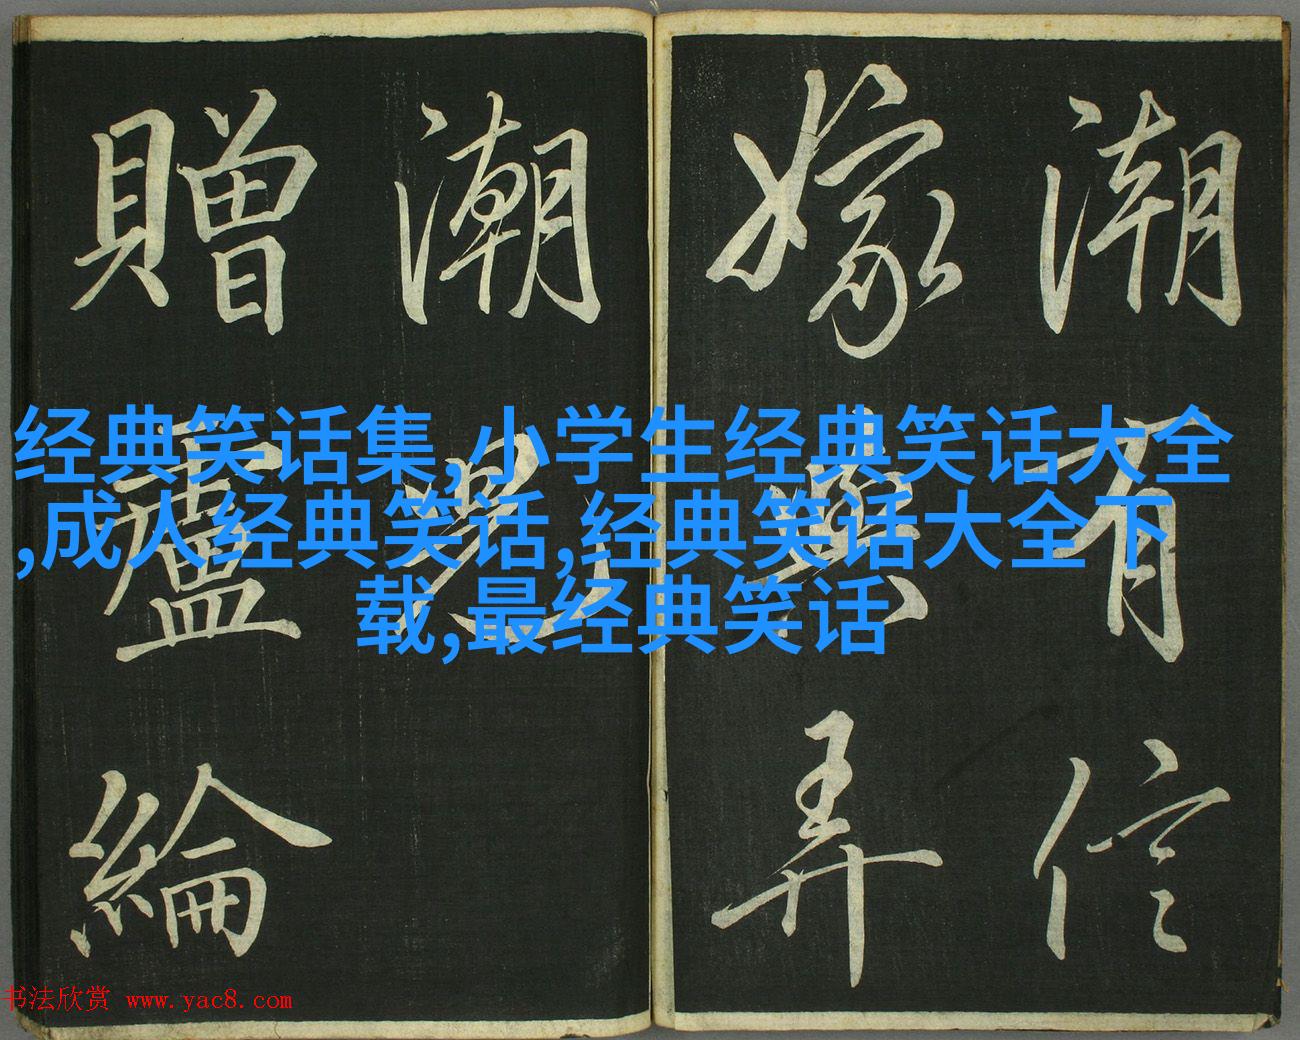 潮有信
嫁與弄
潮兒
贈盧綸
经典笑话集,小学生经典笑话大全
,成人经典笑话,经典笑话大全下
载,最经典笑话
书法欣赏 www.yac8.com